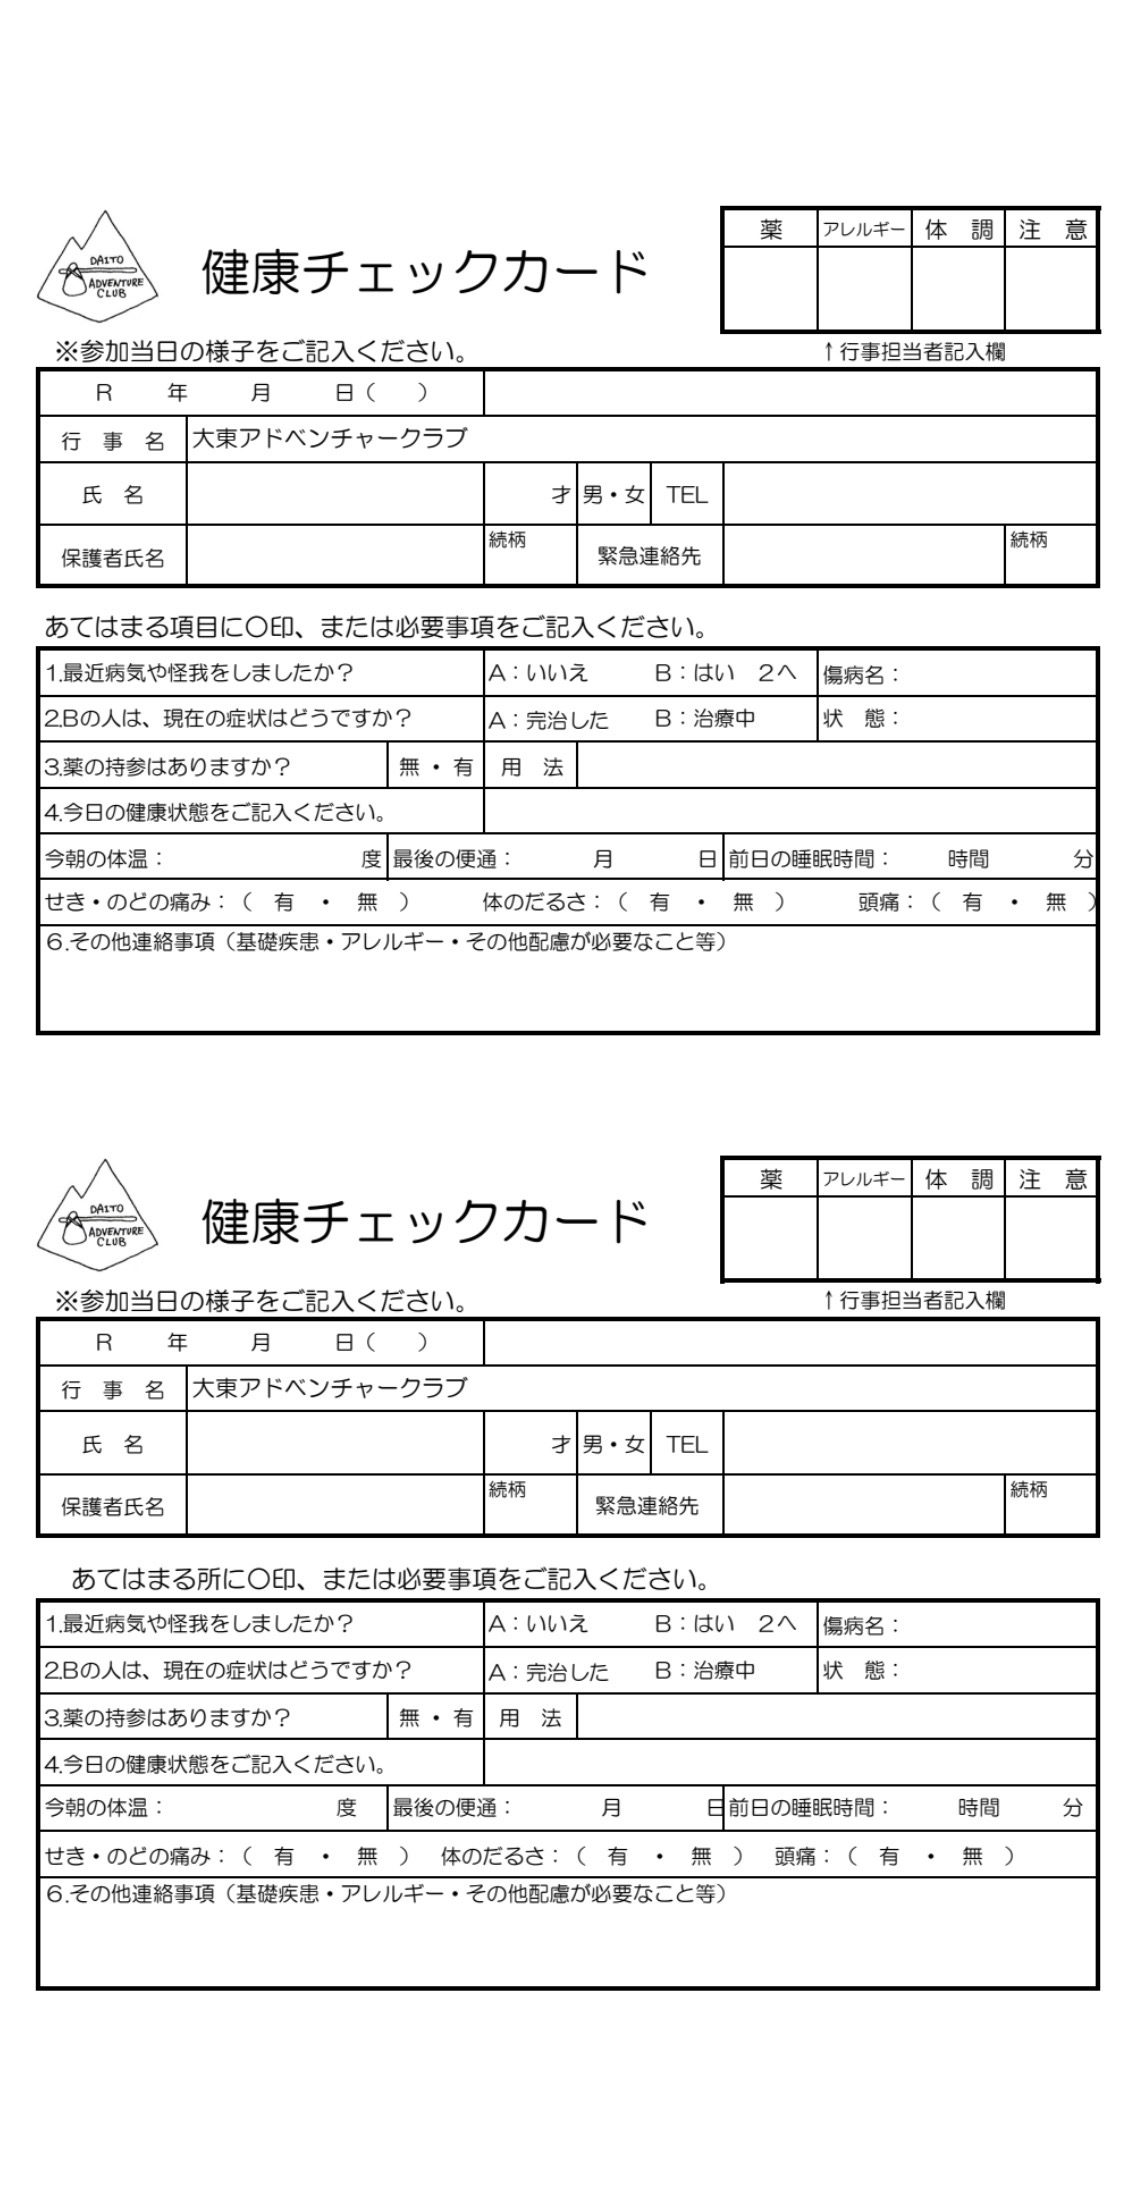 DAITO
ADVENTURE
CLUB
健康チェックカード
薬 アレルギー 体 調 注 意
※参加当日の様子をご記入ください。
↑行事担当者記入欄
R 年 月 日( )
行 事 名 大東アドベンチャークラブ
氏 名 才 男・女 TEL
保護者氏名 続柄 緊急連絡先 続柄
あてはまる項目に〇印、または必要事項をご記入ください。
1.最近病気や怪我をしましたか? A:いいえ B:はい 2へ 傷病名:
2.Bの人は、現在の症状はどうですか? A:完治した B:治療中 状 態:
3.薬の持参はありますか? 無・有 用 法
4.今日の健康状態をご記入ください。
今朝の体温: 度 最後の便通: 月 日 前日の睡眠時間: 時間 分
せき・のどの痛み:( 有 ・ 無 ) 体のだるさ:( 有 ・ 無 ) 頭痛:( 有 ・ 無 )
6.その他連絡事項(基礎疾患・アレルギー・その他配慮が必要なこと等)
DAITO
ADVENTURE
CLUB
健康チェックカード
薬 アレルギー 体 調 注 意
※参加当日の様子をご記入ください。
↑行事担当者記入欄
R 年 月 日( )
行 事 名 大東アドベンチャークラブ
氏 名 才 男・女 TEL
保護者氏名 続柄 緊急連絡先 続柄
あてはまる所に〇印、または必要事項をご記入ください。
1.最近病気や怪我をしましたか? A:いいえ B:はい 2へ 傷病名:
2.Bの人は、現在の症状はどうですか? A:完治した B:治療中 状 態:
3.薬の持参はありますか? 無・有 用 法
4.今日の健康状態をご記入ください。
今朝の体温: 度 最後の便通: 月 日 前日の睡眠時間: 時間 分
せき・のどの痛み:( 有 ・ 無 ) 体のだるさ:( 有 ・ 無 ) 頭痛:( 有 ・ 無 )
6.その他連絡事項(基礎疾患・アレルギー・その他配慮が必要なこと等)